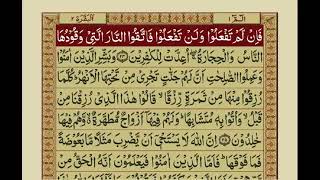 الٓمّٓ ١
الْبَقَرَة ٢
فَاِنْ لَّمْ تَفْعَلُوْا وَلَنْ تَفْعَلُوْا فَاتَّقُوا النَّارَ الَّتِيْ وَقُوْدُهَا
النَّاسُ وَالْحِجَارَةُ ۖ اُعِدَّتْ لِلْكٰفِرِيْنَ ﴿۲۴﴾ وَبَشِّرِ الَّذِيْنَ اٰمَنُوْا
وَعَمِلُوا الصّٰلِحٰتِ اَنَّ لَهُمْ جَنّٰتٍ تَجْرِيْ مِنْ تَحْتِهَا الْاَنْهٰرُ ؕ كُلَّمَا
رُزِقُوْا مِنْهَا مِنْ ثَمَرَةٍ رِّزْقًا ۙ قَالُوْا هٰذَا الَّذِيْ رُزِقْنَا مِنْ
قَبْلُ ۙ وَاُتُوْا بِهٖ مُتَشَابِهًا ؕ وَلَهُمْ فِيْهَاۤ اَزْوَاجٌ مُّطَهَّرَةٌ ۙ وَّهُمْ فِيْهَا
خٰلِدُوْنَ ﴿۲۵﴾ اِنَّ اللّٰهَ لَا يَسْتَحْيٖۤ اَنْ يَّضْرِبَ مَثَلًا مَّا بَعُوْضَةً
فَمَا فَوْقَهَا ؕ فَاَمَّا الَّذِيْنَ اٰمَنُوْا فَيَعْلَمُوْنَ اَنَّهُ الْحَقُّ مِنْ